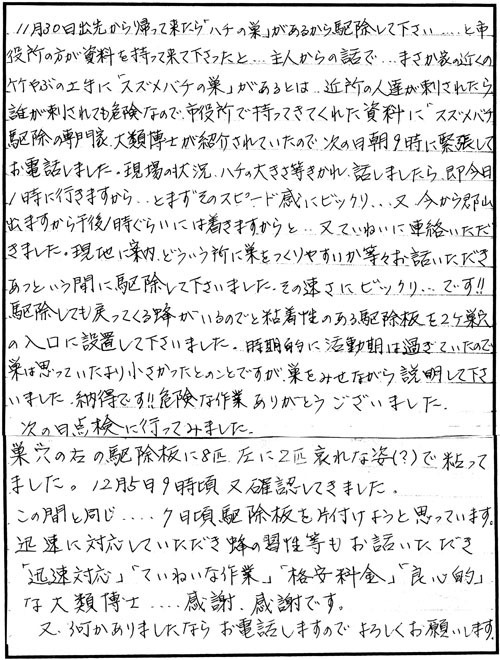 11月30日出先から帰って来たら「ハチの巣」があるから駆除して下さい‥‥と市
役所の方が資料を持って来て下さったと…主人からの話で…まさか家の近くの
竹やぶの土手に「スズメバチの巣」があるとは…近所の人達が刺されたら
誰が刺されても危険なので、市役所で持ってきてくれた資料に"スズメバチ
駆除の専門家、大類博士が紹介されていたので次の日朝9時に緊張して
お電話しました。現場の状況、ハチの大きさ等きかれ、話しましたら、即今日
1時に行きますから‥とまずそのスピード感にビックリ…又、今から郡山
出ますから午後1時ぐらいには着きますからと…又ていねいに連絡いただ
きました。現地に案内、どういう所に巣をつくりやすいか等々お話いただき
あっという間に駆除して下さいました。その速さに、ビックリ…です!!
駆除しても戻ってくる蜂がいるのでと粘着性のある駆除板を2ヶ巣穴
の入口に設置して下さいました。時期的に活動期は過ぎていたので
巣は思っていたより小さかったとのことですが、巣をみせながら説明して下さ
いました。納得です!!危険な作業ありがとうございました。
次の日点検に行ってみました。
巣穴の右の駆除板に8匹 左に2匹 哀れな姿(?)で粘って
ました。12月5日9時頃又確認してきました。
この間と同じ‥‥7日頃駆除板を片付けようと思っています。
迅速に対応していただき蜂の習性等もお話いただき
「迅速対応」「ていねいな作業」「格安料金」「良心的」
な大類博士‥‥感謝、感謝です。
又、何かありましたならお電話しますのでよろしくお願いします。